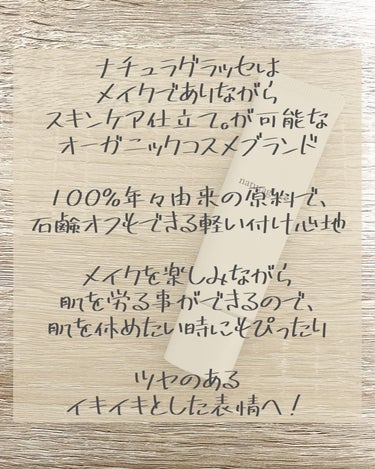 ナチュラグラッセは
メイクでありながら
スキンケア仕立て。が可能な
オーガニックコスメブランド
100%年々由来の原料で、
石鹸オフもできる軽い付け心地
メイクを楽しみながら
肌を労る事ができるので、
肌を休めたい時にもぴったり
ツヤのある
イキイキとした表情へ!